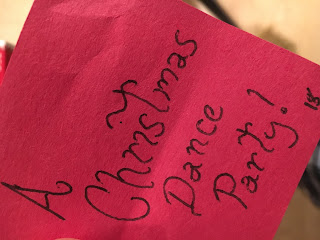 A
Christmas
Dance
Party!
18